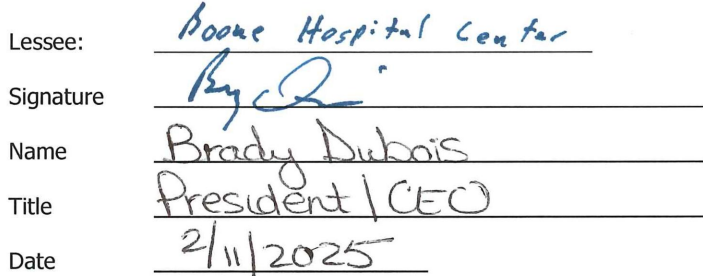 Lessee: Boone Hospital Center
Signature
Name Brady Dubois
Title President | CEO
Date 2/11/2025